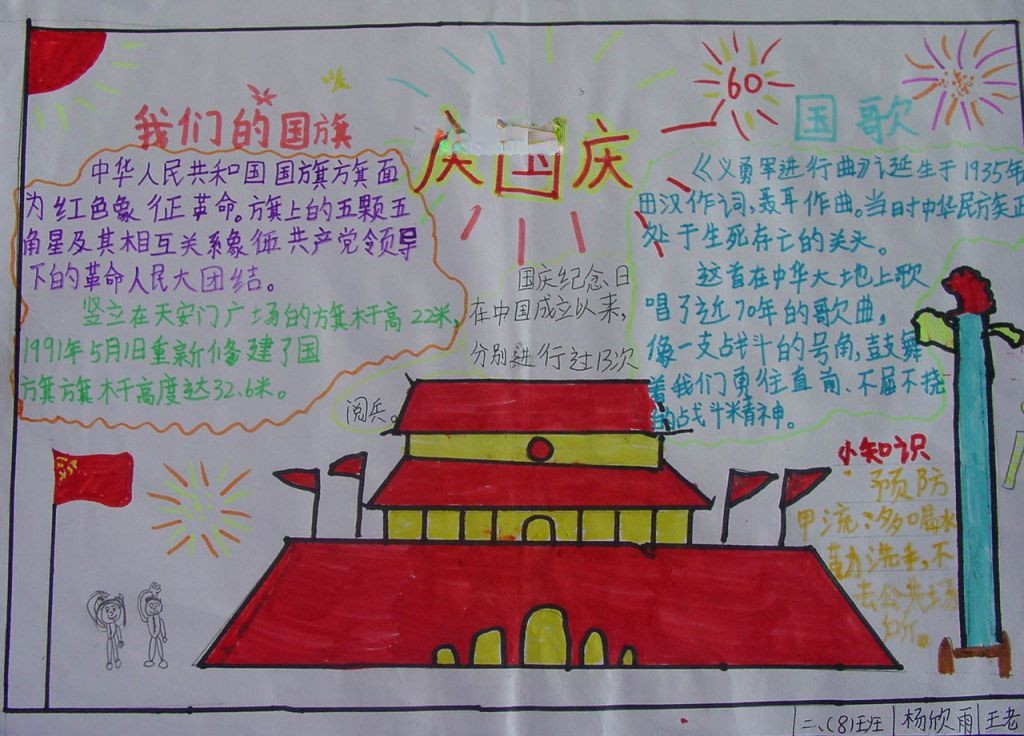 我们的国旗
中华人民共和国国旗旗面
为红色象征革命。旗上的五颗五
角星及其相互关系象征共产党领导
下的革命人民大团结。
竖立在天安门广场的旗杆高22米,
1991年5月1日重新修建了国
旗旗杆高度达32.6米。
庆国庆
国庆纪念日
在中国成立以来,
分别进行过13次
阅兵。
60
国歌
《义勇军进行曲》诞生于1935年
田汉作词,聂耳作曲。当时中华民族正
处于生死存亡的关头。
这首在中华大地上歌
唱了近70年的歌曲,
像一支战斗的号角,鼓舞
着我们勇往直前、不屈不挠
的战斗精神。
小知识
预防
甲流:多喝水
勤洗手,不
去公共场
所。
二、(8)班 杨欣雨 王老